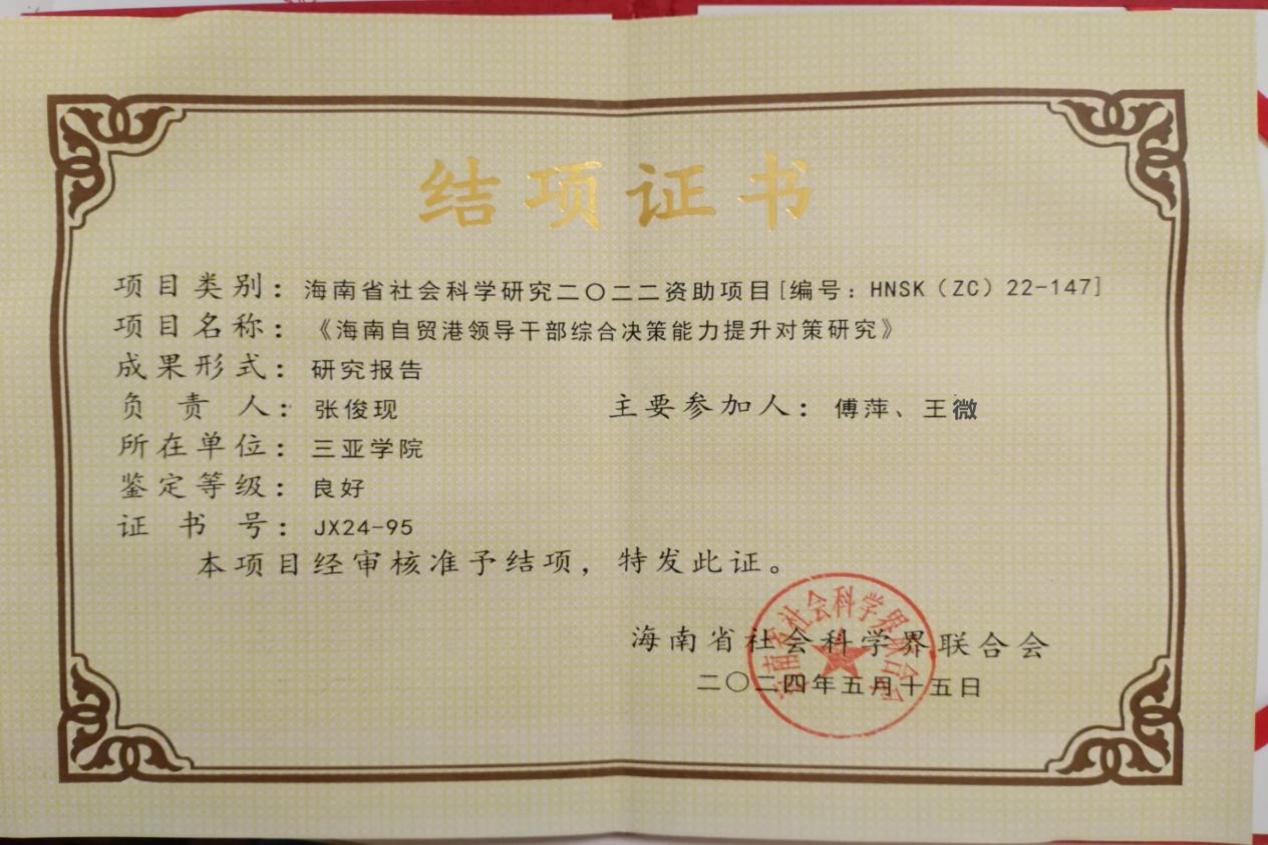 结项证书
项目类别：海南省社会科学研究二〇二二资助项目[编号：HNSK（ZC）22-147]
项目名称：《海南自贸港领导干部综合决策能力提升对策研究》
成果形式：研究报告
负责人：张俊现 主要参加人：傅萍、王微
所在单位：三亚学院
鉴定等级：良好
证书号：JX24-95
本项目经审核准予结项，特发此证。
海南省社会科学界联合会
二〇二四年五月十五日
海南省社会科学界联合会